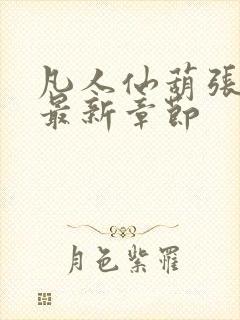 凡人仙葫張
最新章節
月色紫羅